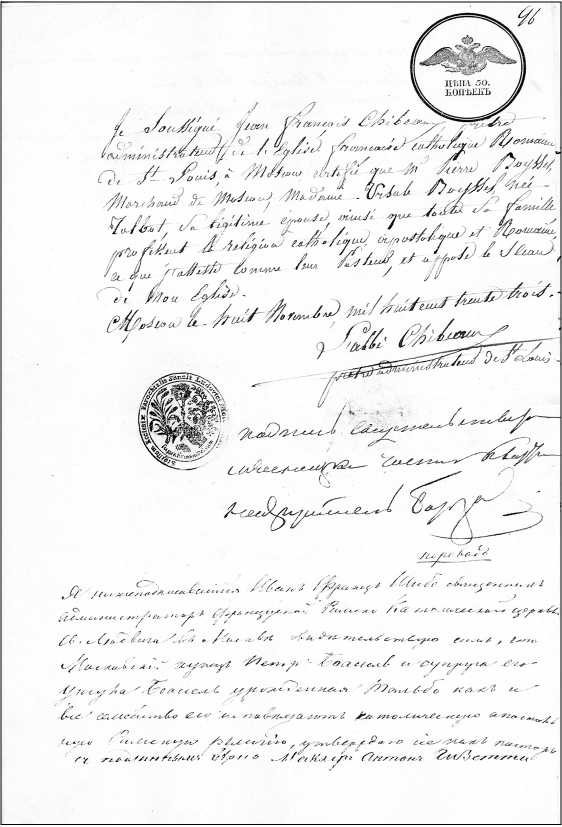 96
ЦѢНА 50.
КОПѢЕКЪ
Je Soussigné, Jean François Chibeaux, prêtre
administrateur de l'Eglise française catholique Romaine
de St Louis, à Moscou certifie que Mr Pierre Boyssel,
Marchand de Moscou, Madame Ursule Boyssel, née
Talbot, sa légitime épouse, ainsi que toute sa famille
professent la religion catholique, apostolique et Romaine,
ce que j'atteste comme leur Pasteur, et appose le Sceau
de Mon Eglise.
Moscou le huit Novembre, mil huit cent trente trois.
L'abbé Chibeaux
prêtre administrateur de St Louis
Sigillum Ecclesiae Parochialis Sancti Ludovici
подпись
части
надзиратель
переводъ
Я нижеподписавшийся Иванъ Францъ Шибо священникъ
администраторъ Французской Римско Католической церкви
Св. Людвига въ Москвѣ свидетельствую симъ, что
Московский купецъ Петръ Боасель и супруга его
Урсула Боасель урожденная Тальбо какъ и
все семейство его исповедуютъ католическую апостоль
скую Римскую религию, утверждаю се какъ пасторъ
съ подлиннымъ верно Маклеръ Антонъ